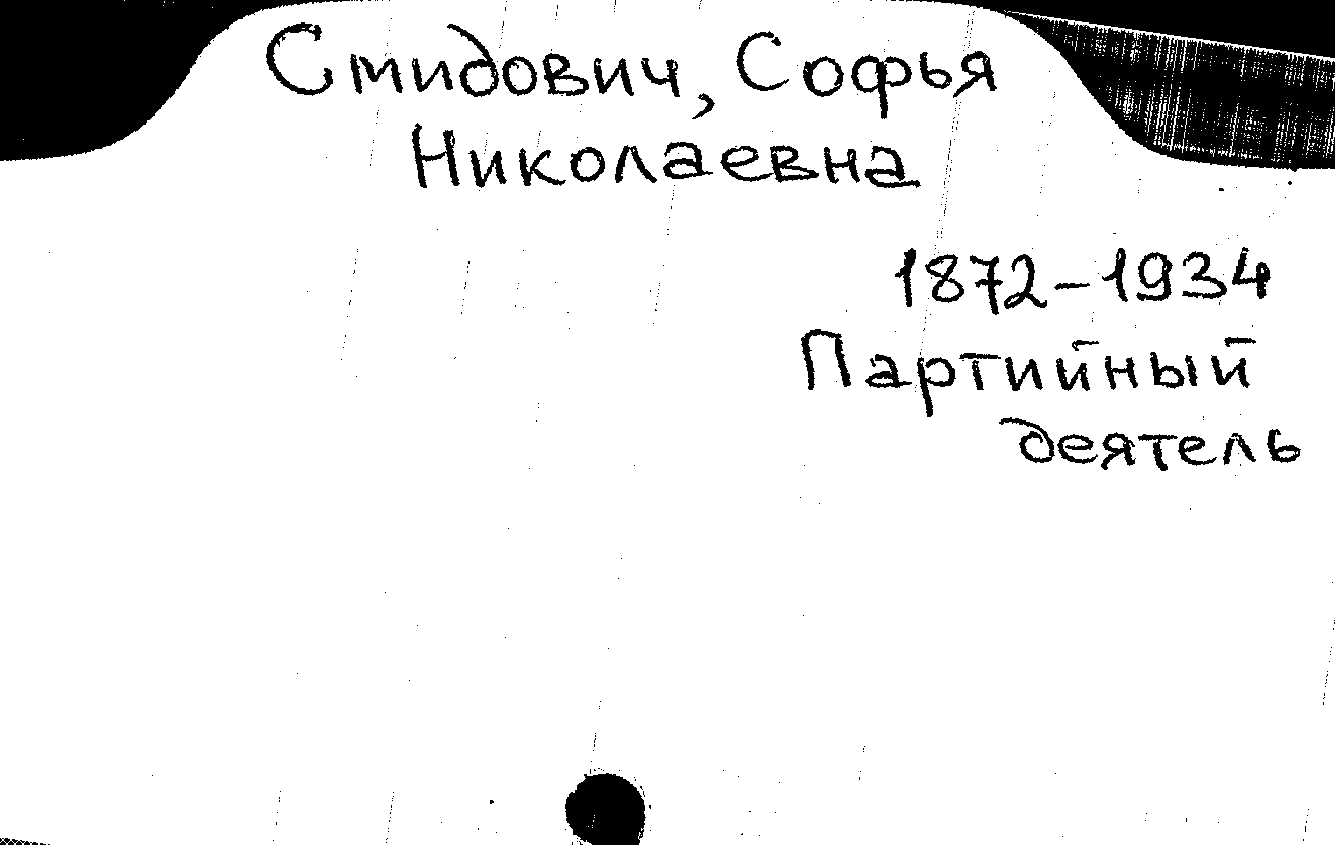 Смидович, Софья
Николаевна
1872–1934
Партийный
деятель